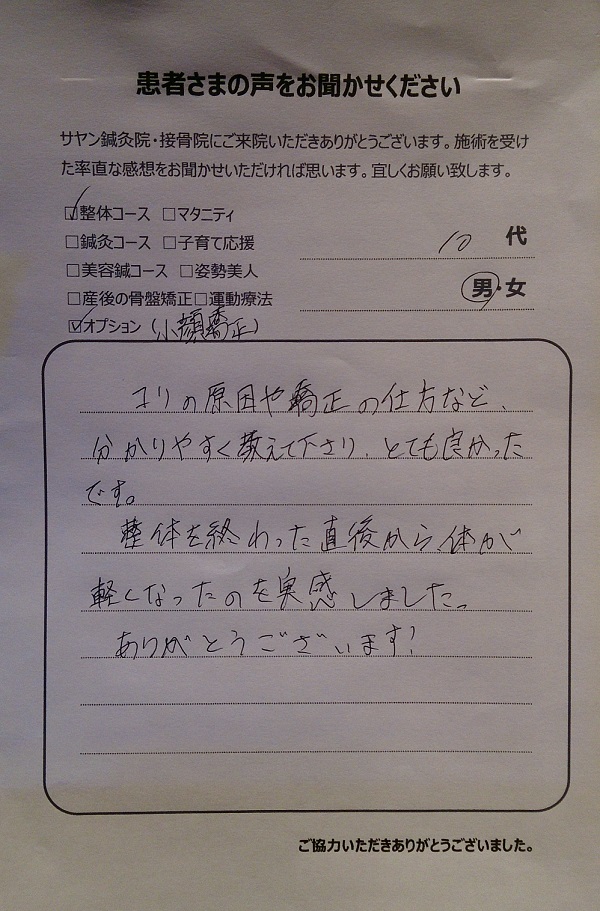 患者さまの声をお聞かせください
サヤン鍼灸院・接骨院にご来院いただきありがとうございます。施術を受け
た率直な感想をお聞かせいただければ思います。宜しくお願い致します。
☑整体コース □マタニティ
□鍼灸コース □子育て応援
10 代
□美容鍼コース □姿勢美人
男・女
□産後の骨盤矯正□運動療法
☑オプション(小顔矯正)
コリの原因や矯正の仕方など、
分かりやすく教えて下さり、とても良かった
です。
整体を終わった直後から、体が
軽くなったのを実感しました。
ありがとうございます!
ご協力いただきありがとうございました。